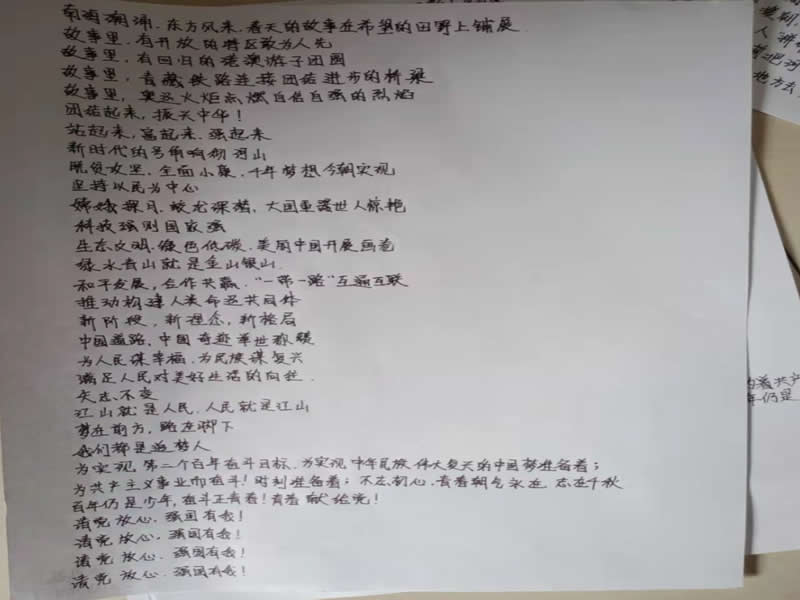 南海潮涌,东方风来,春天的故事在希望的田野上铺展
故事里,有开放的特区敢为人先
故事里,有回归的港澳游子团圆
故事里,青藏铁路连接团结进步的桥梁
故事里,奥运火炬点燃自信自强的烈焰
团结起来,振兴中华!
站起来,富起来,强起来
新时代的号角响彻河山
脱贫攻坚,全面小康,千年梦想今朝实现
坚持以民为中心
嫦娥探月,蛟龙深潜,大国重器世人惊艳
科技强则国家强
生态文明,绿色低碳,美丽中国开展画卷
绿水青山就是金山银山
和平发展,合作共赢,“一带一路”互通互联
推动构建人类命运共同体
新阶段,新理念,新格局
中国道路,中国奇迹举世称赞
为人民谋幸福,为民族谋复兴
满足人民对美好生活的向往
矢志不变
江山就是人民,人民就是江山
梦在前方,路在脚下
我们都是追梦人
为实现第二个百年奋斗目标,为实现中华民族伟大复兴的中国梦准备着;
为共产主义事业而奋斗!时刻准备着;不忘初心,青春朝气永在,志在千秋
百年仍是少年,奋斗正青春!青春献给党!
请党放心,强国有我!
请党放心,强国有我!
请党放心,强国有我!
请党放心,强国有我!